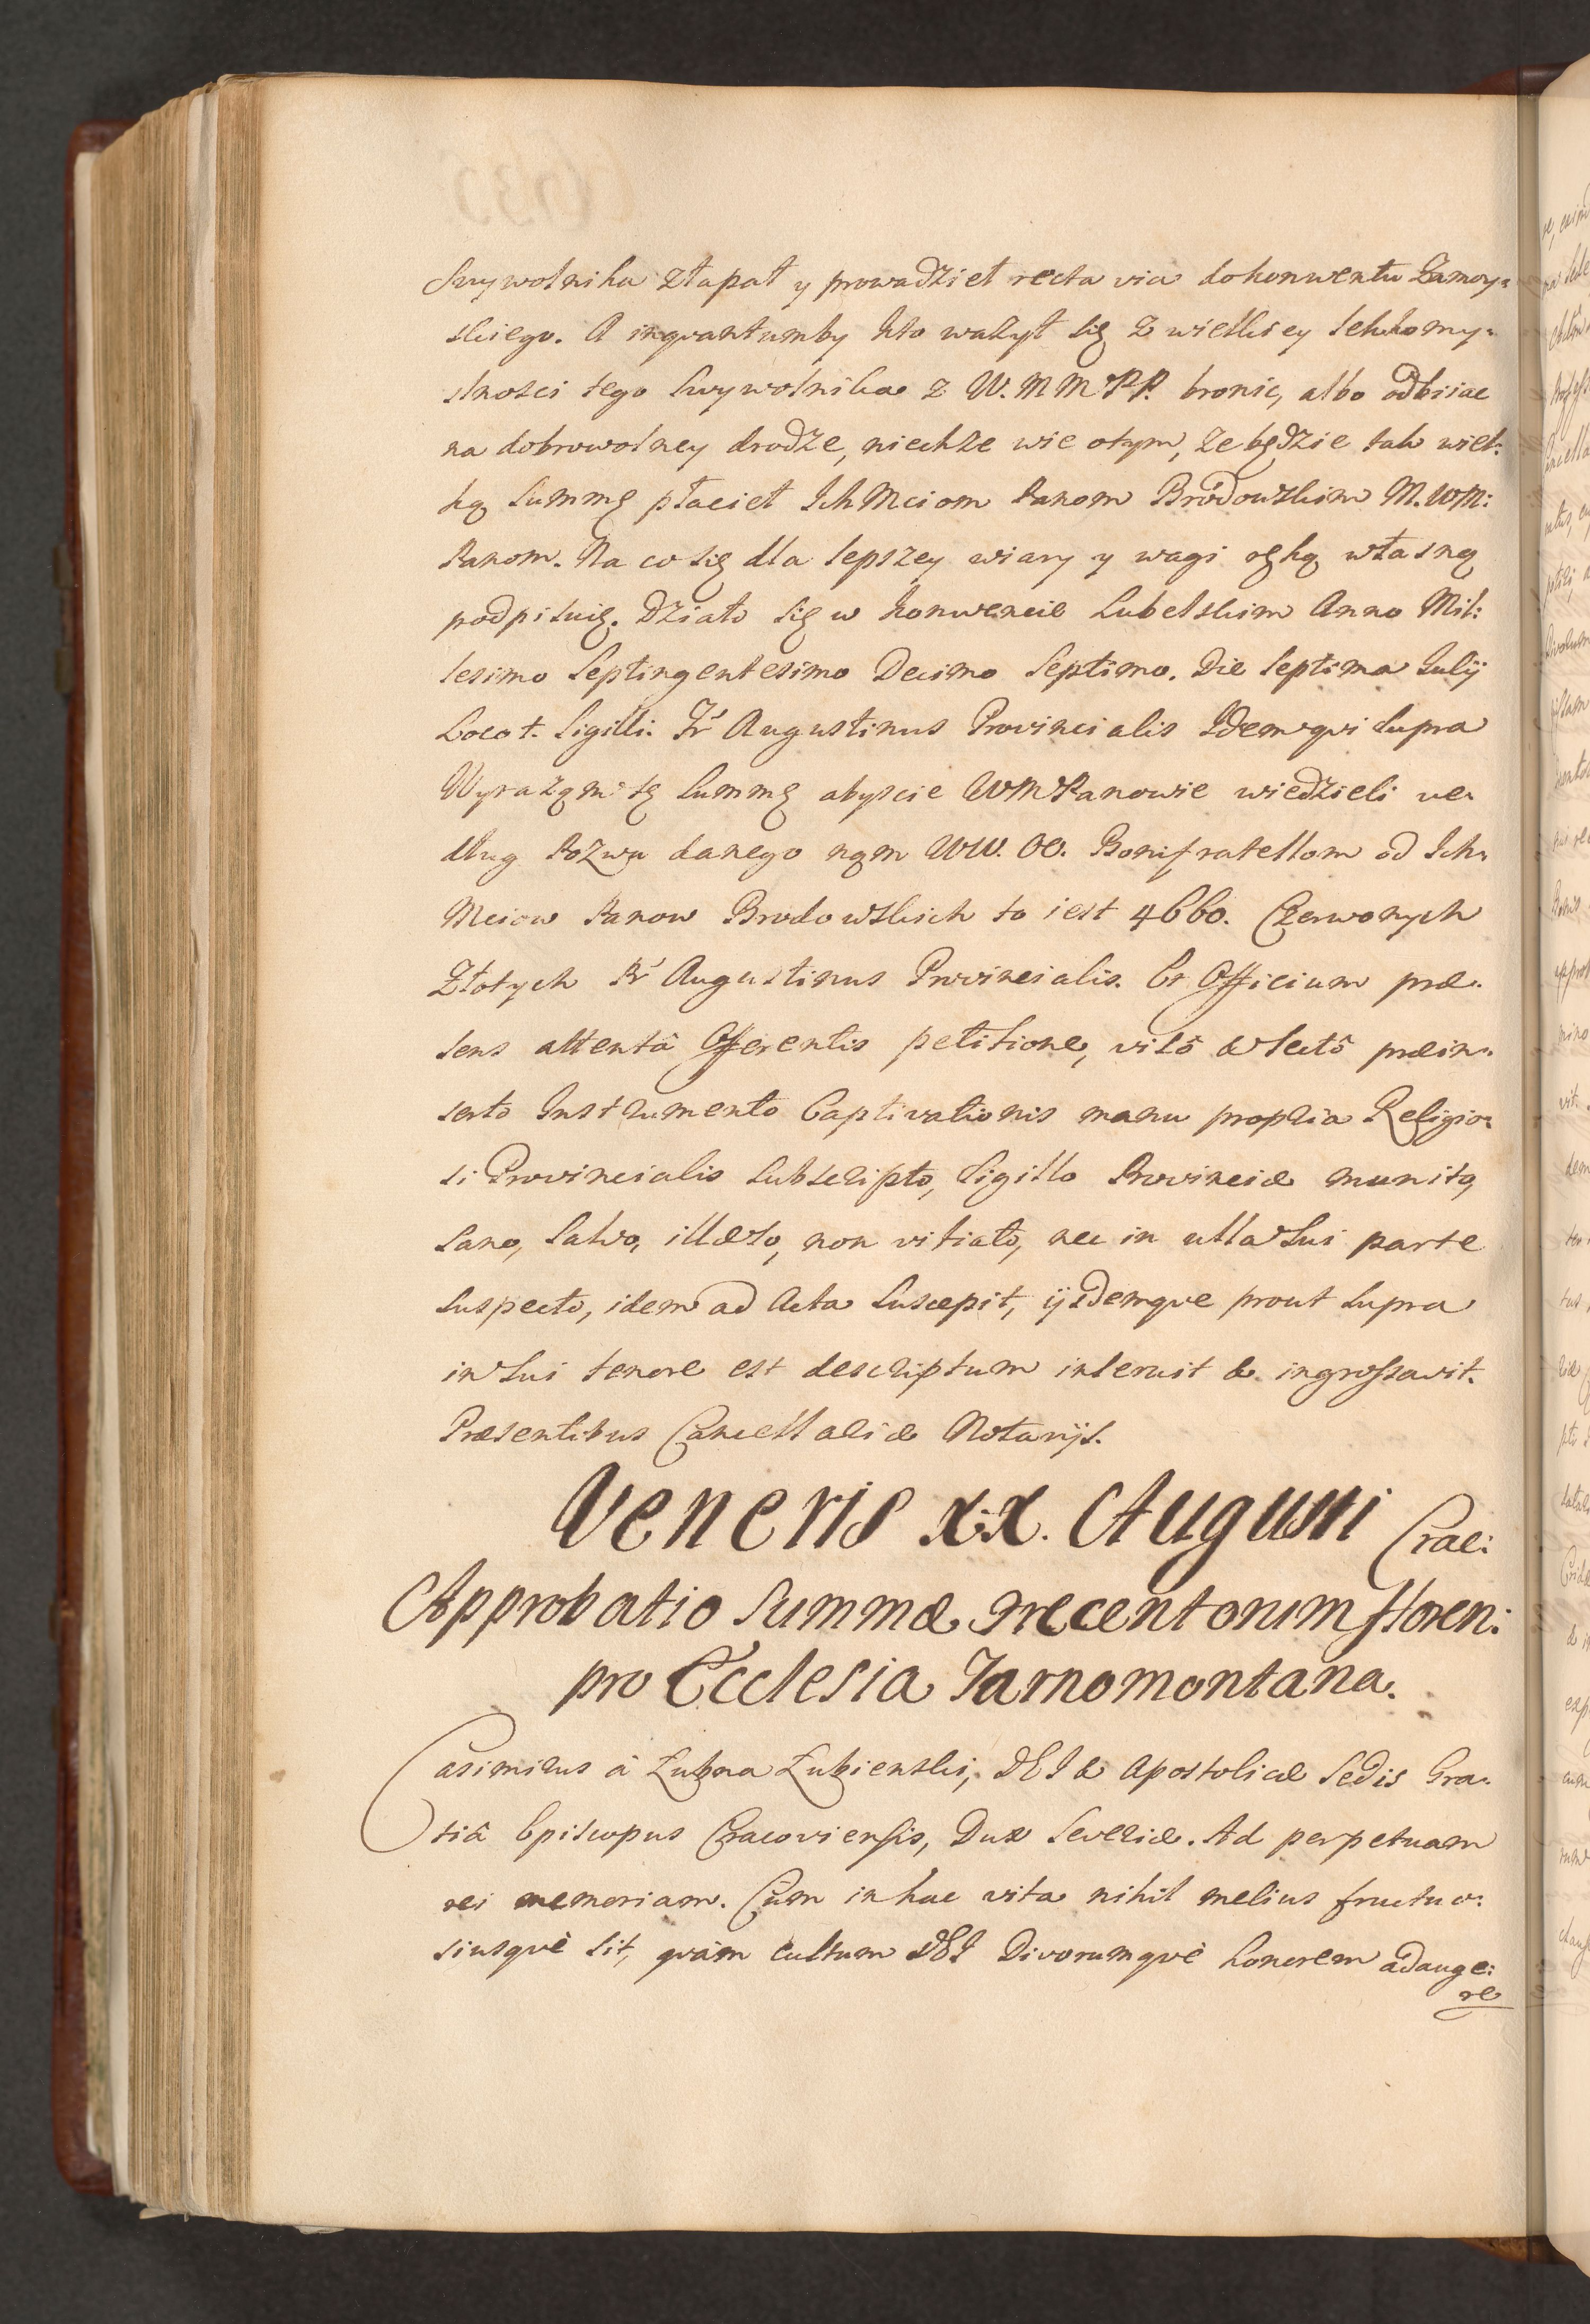 Swywolnika złapał y prowadzieł recta via do konwentu Zamoy=
skiego. A inqvantumby kto ważył się z wielkiey lekkomy=
slnosci tego Swywolnika z W. M M PP. bronic, albo odbiiac
na dobrowolney drodze, niechże wie otym, że będzie tak wiel=
ką Summę płacieł Ich Mciom Panom Brodowskim M. WM:
Panom. Na co się dla lepszey wiary y wagi ręką własną
podpisuię. Działo się w konwencie Lubelskim Anno Mil:
lesimo Septingentesimo Decimo Septimo. Die Septima Julij
Locat. Sigilli. Fr Augustinus Provincialis Idem qvi supra
Wyrażąm tę Summę abyscie WMPanowie wiedzieli ve=
dług Pozwu danego nąm WW. OO. Bonifratellom od Ich=
Mciow Panow Brodowskich to iest 4660. Czerwonych
Złotych Fr Augustinus Provincialis. Et Officium præ=
sens attentâ Offerentis petitione, visô & lectô præin=
serto Instrumento Captivationis manu propria Religio=
si Provincialis Subscripto, Sigillo Provinciæ munito,
sano, salvo, illæso, non vitiato, nec in ulla Sui parte
Suspecto, idem ad Acta Suscepit, ijsdemqve prout Supra
in Sui tenore est descriptum inseruit & ingrossavit.
Præsentibus Cancellariæ Notarijs.
Veneris XX. Augusti Crac:
Approbatio Summæ Trecentorum floren:
pro Ecclesia Tarnomontana.
Casimirus à Łubna Łubienski, DEI & Apostolicæ Sedis Gra=
tiâ Episcopus Cracoviensis, Dux Severiæ. Ad perpetuam
rei memoriam. Cum in hac vita nihil melius fructuo=
siusqvè sit, qvàm cultum DEI Divorumqvè honorem adauge:
re